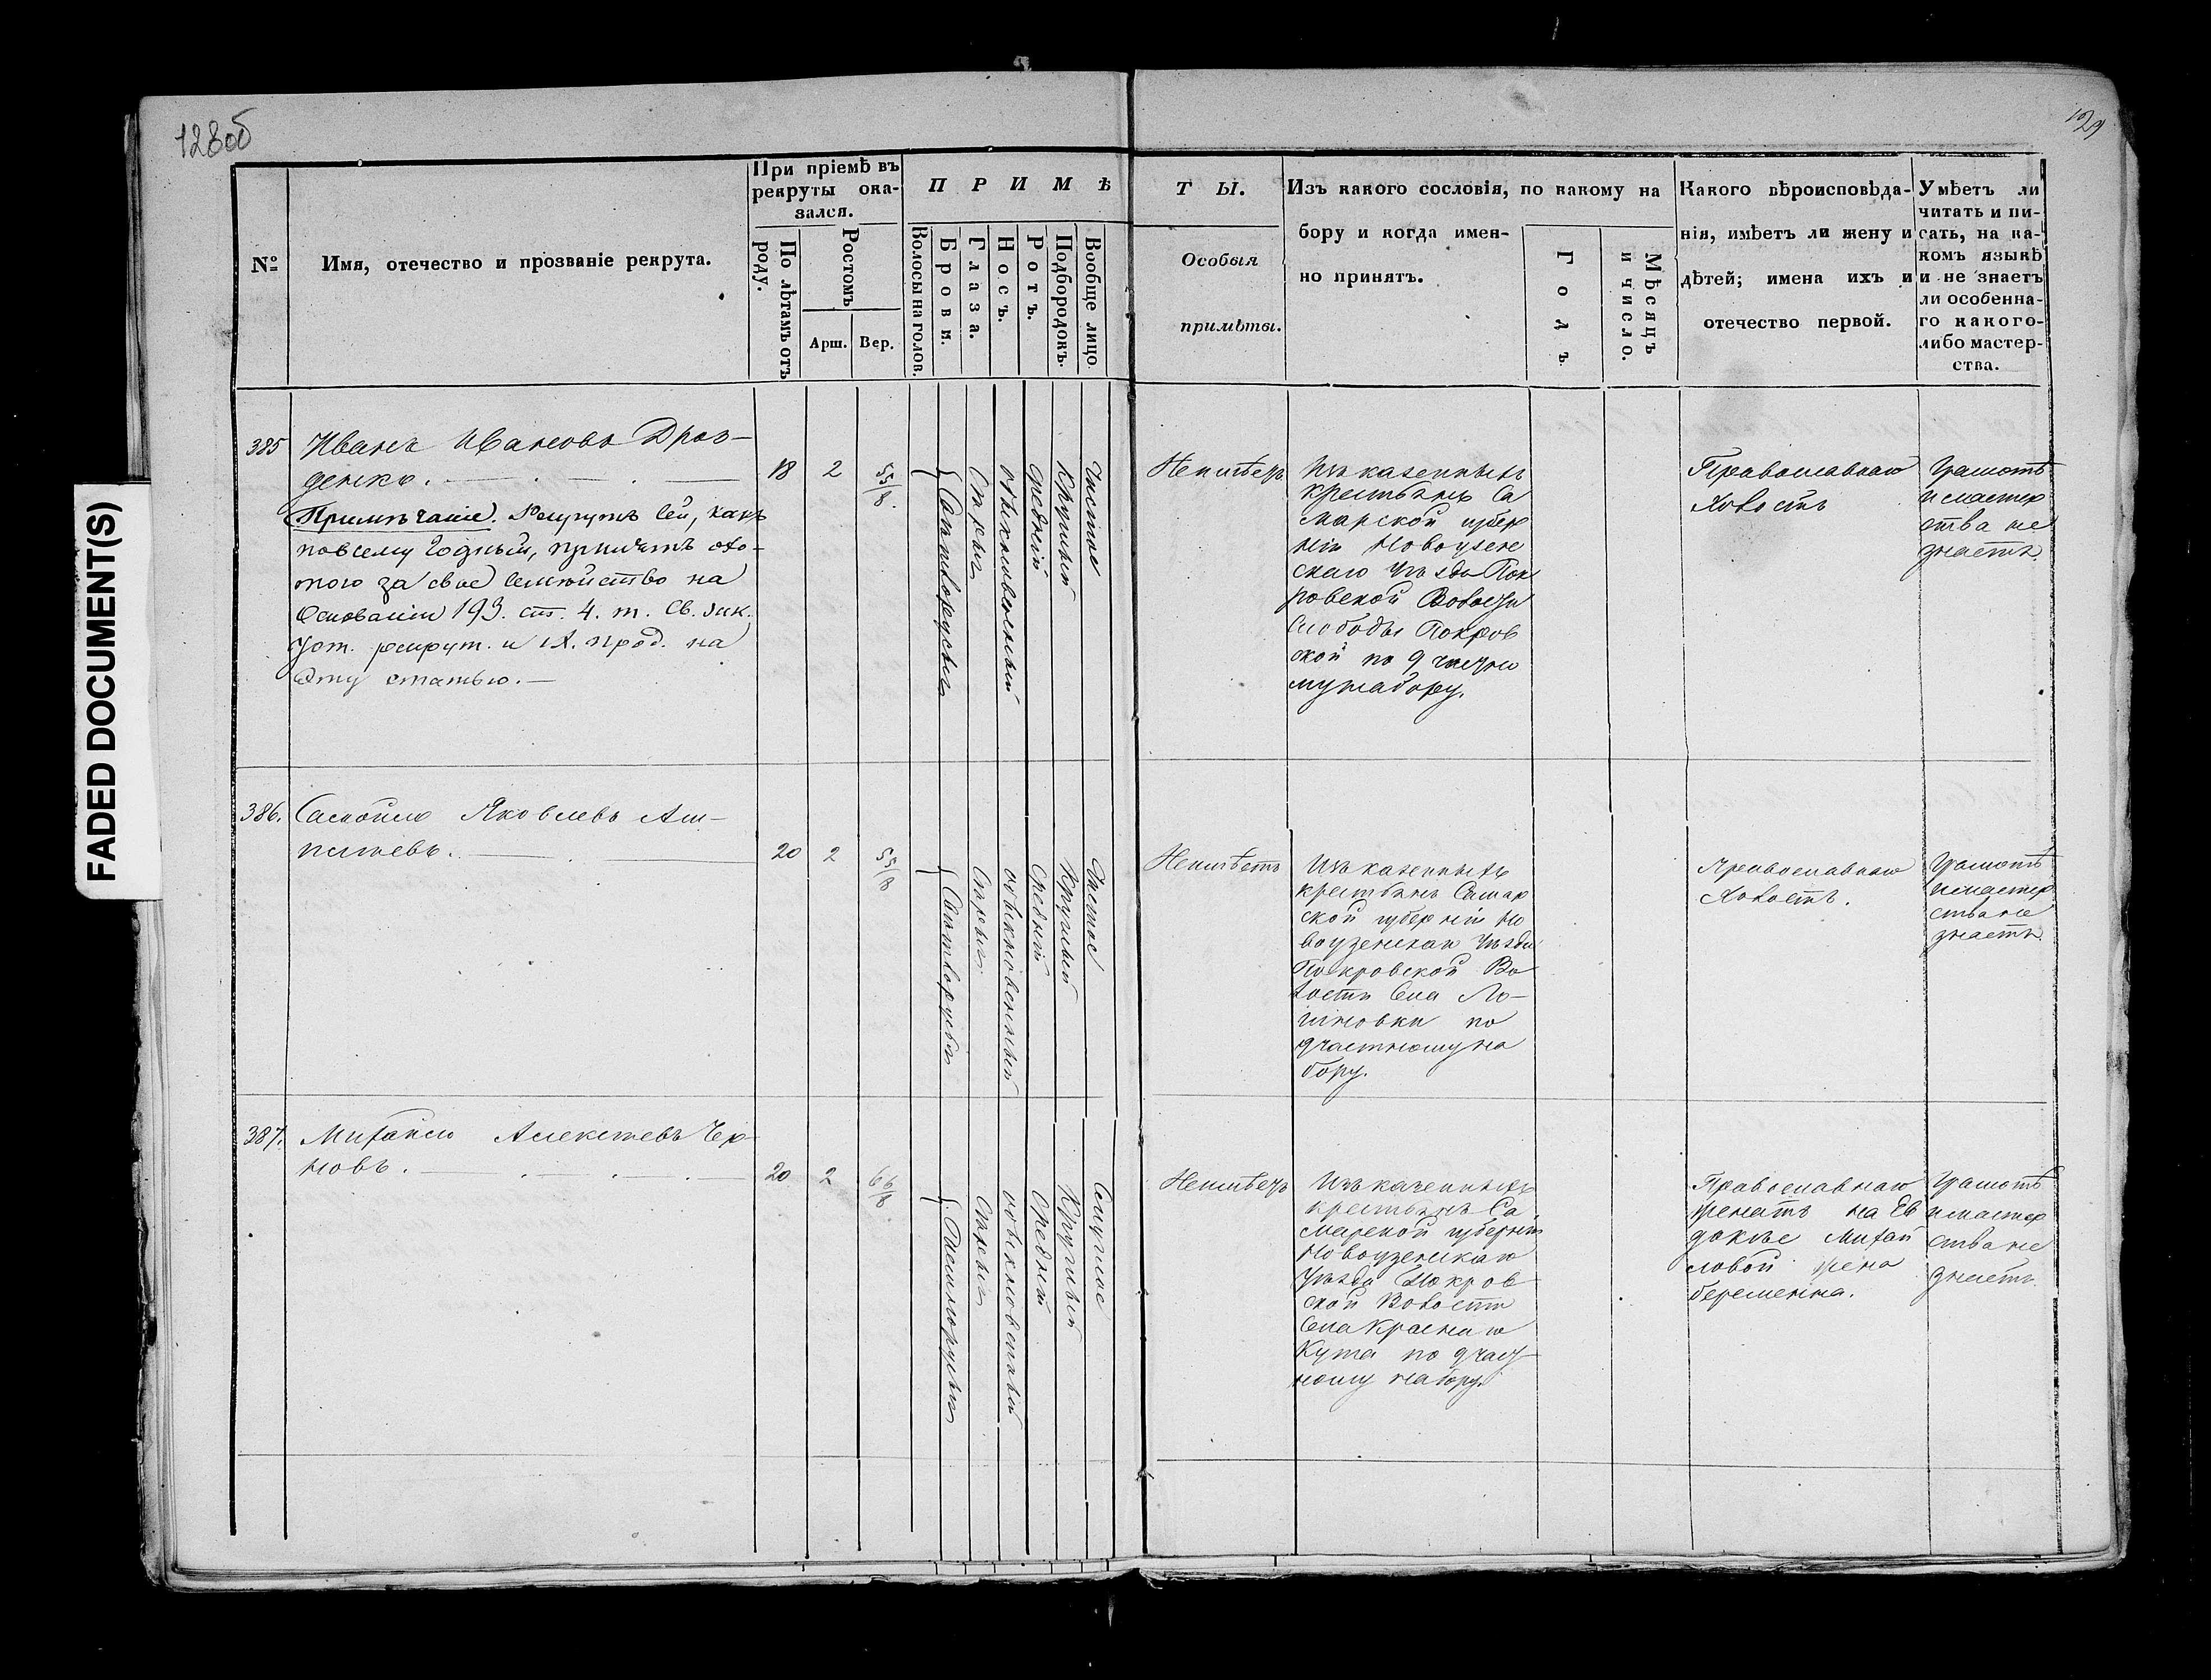 128об
129
FADED DOCUMENT(S)
№
Имя, отечество и прозваніе рекрута.
При пріемѣ въ
рекруты ока-
зался.
По лѣтамъ отъ
роду.
Ростомъ
Арш. Вер.
ПРИМѢ
Волосы на голов.
Брови.
Глаза.
Носъ.
Ротъ.
Подбородокъ.
Вообще лицо.
ТЫ.
Особыя
примѣты.
Изъ какого сословія, по какому на
бору и когда имен-
но принятъ.
Годъ.
Мѣсяцъ
и число.
Какого вѣроисповѣда-
нія, имѣетъ ли жену и
дѣтей; имена ихъ и
отечество первой.
Умѣетъ ли
читать и пи-
сать, на ка-
комъ языкѣ
и не знаетъ
ли особенна-
го какого-
либо мастер-
ства.
385
Иванъ Ивановъ Дроз-
денко.
Примѣчаніе. Рекрутъ сей, какъ
повсему годный, принятъ охо-
тою за свое семейство на
основаніи 193. ст. 4. т. Св. зак.
Уст. рекрут. и IX. прод. на
эту статью.
18
2
5 5/8.
Свѣтлорусыя
Сѣрыя
обыкновенный
средній
Круглый
Чистое
Неимѣетъ
Изъ казенныхъ
крестьянъ Са
марской губер
ніи Новоузен
скаго Уѣзда Пок
ровской Волости
Слободы Покров
ской по 9 частно
му набору.
Православнаго
Холостъ
Грамотѣ
и мастер
ства не
знаетъ.
386.
Самойло Яковлевъ
20
2
5 5/8
Свѣтлорусыя
Сѣрыя
обыкновенный
средній
Круглый
Чистое
Неимѣетъ
Изъ казенныхъ
крестьянъ Самар
ской губерніи Но
воузенскаго Уѣзда
Покровской Во
лости Села Ло-
гиновки по
9 частному на
бору.
Православнаго
Холостъ.
Грамотѣ
и мастер
ства не
знаетъ.
387.
Михайло Алексѣевъ Чер-
новъ.
20
2
6 6/8
Темнорусыя
Сѣрыя
обыкновенный
Средній
Круглый
Смуглое
Неимѣетъ
Изъ казенныхъ
крестьянъ Са
марской губерніи
Новоузенскаго
Уѣзда Покров
ской Волости
Села Краснаго
Кута по 9 част
ному набору.
Православнаго
женатъ на Ев
докіе Михай
ловой жена
беременна.
Грамотѣ
и мастер
ства не
знаетъ.